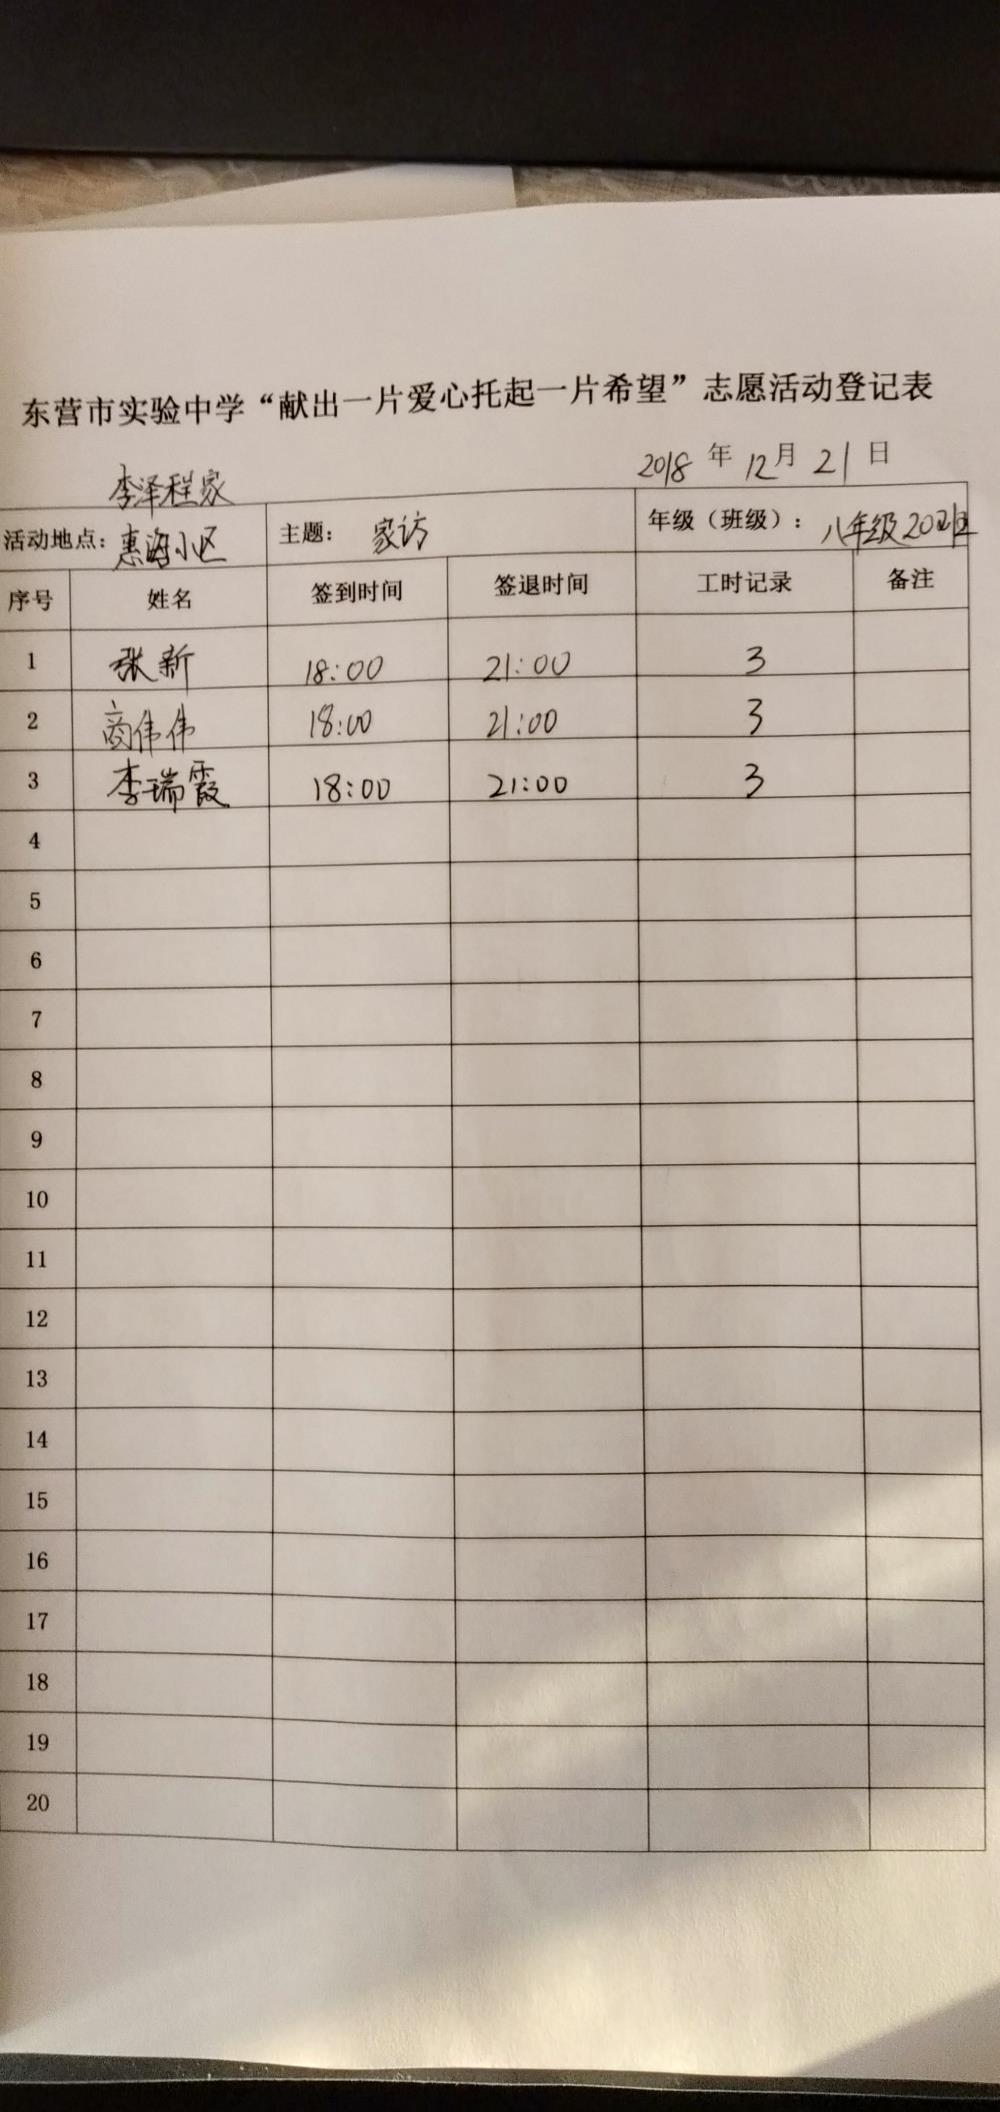 东营市实验中学“献出一片爱心托起一片希望”志愿活动登记表
2018 年 12 月 21 日
李泽程家
活动地点：惠海小区 主题：家访 年级（班级）：八年级20班
序号 姓名 签到时间 签退时间 工时记录 备注
1 张新 18:00 21:00 3
2 商伟伟 18:00 21:00 3
3 李瑞霞 18:00 21:00 3
4
5
6
7
8
9
10
11
12
13
14
15
16
17
18
19
20